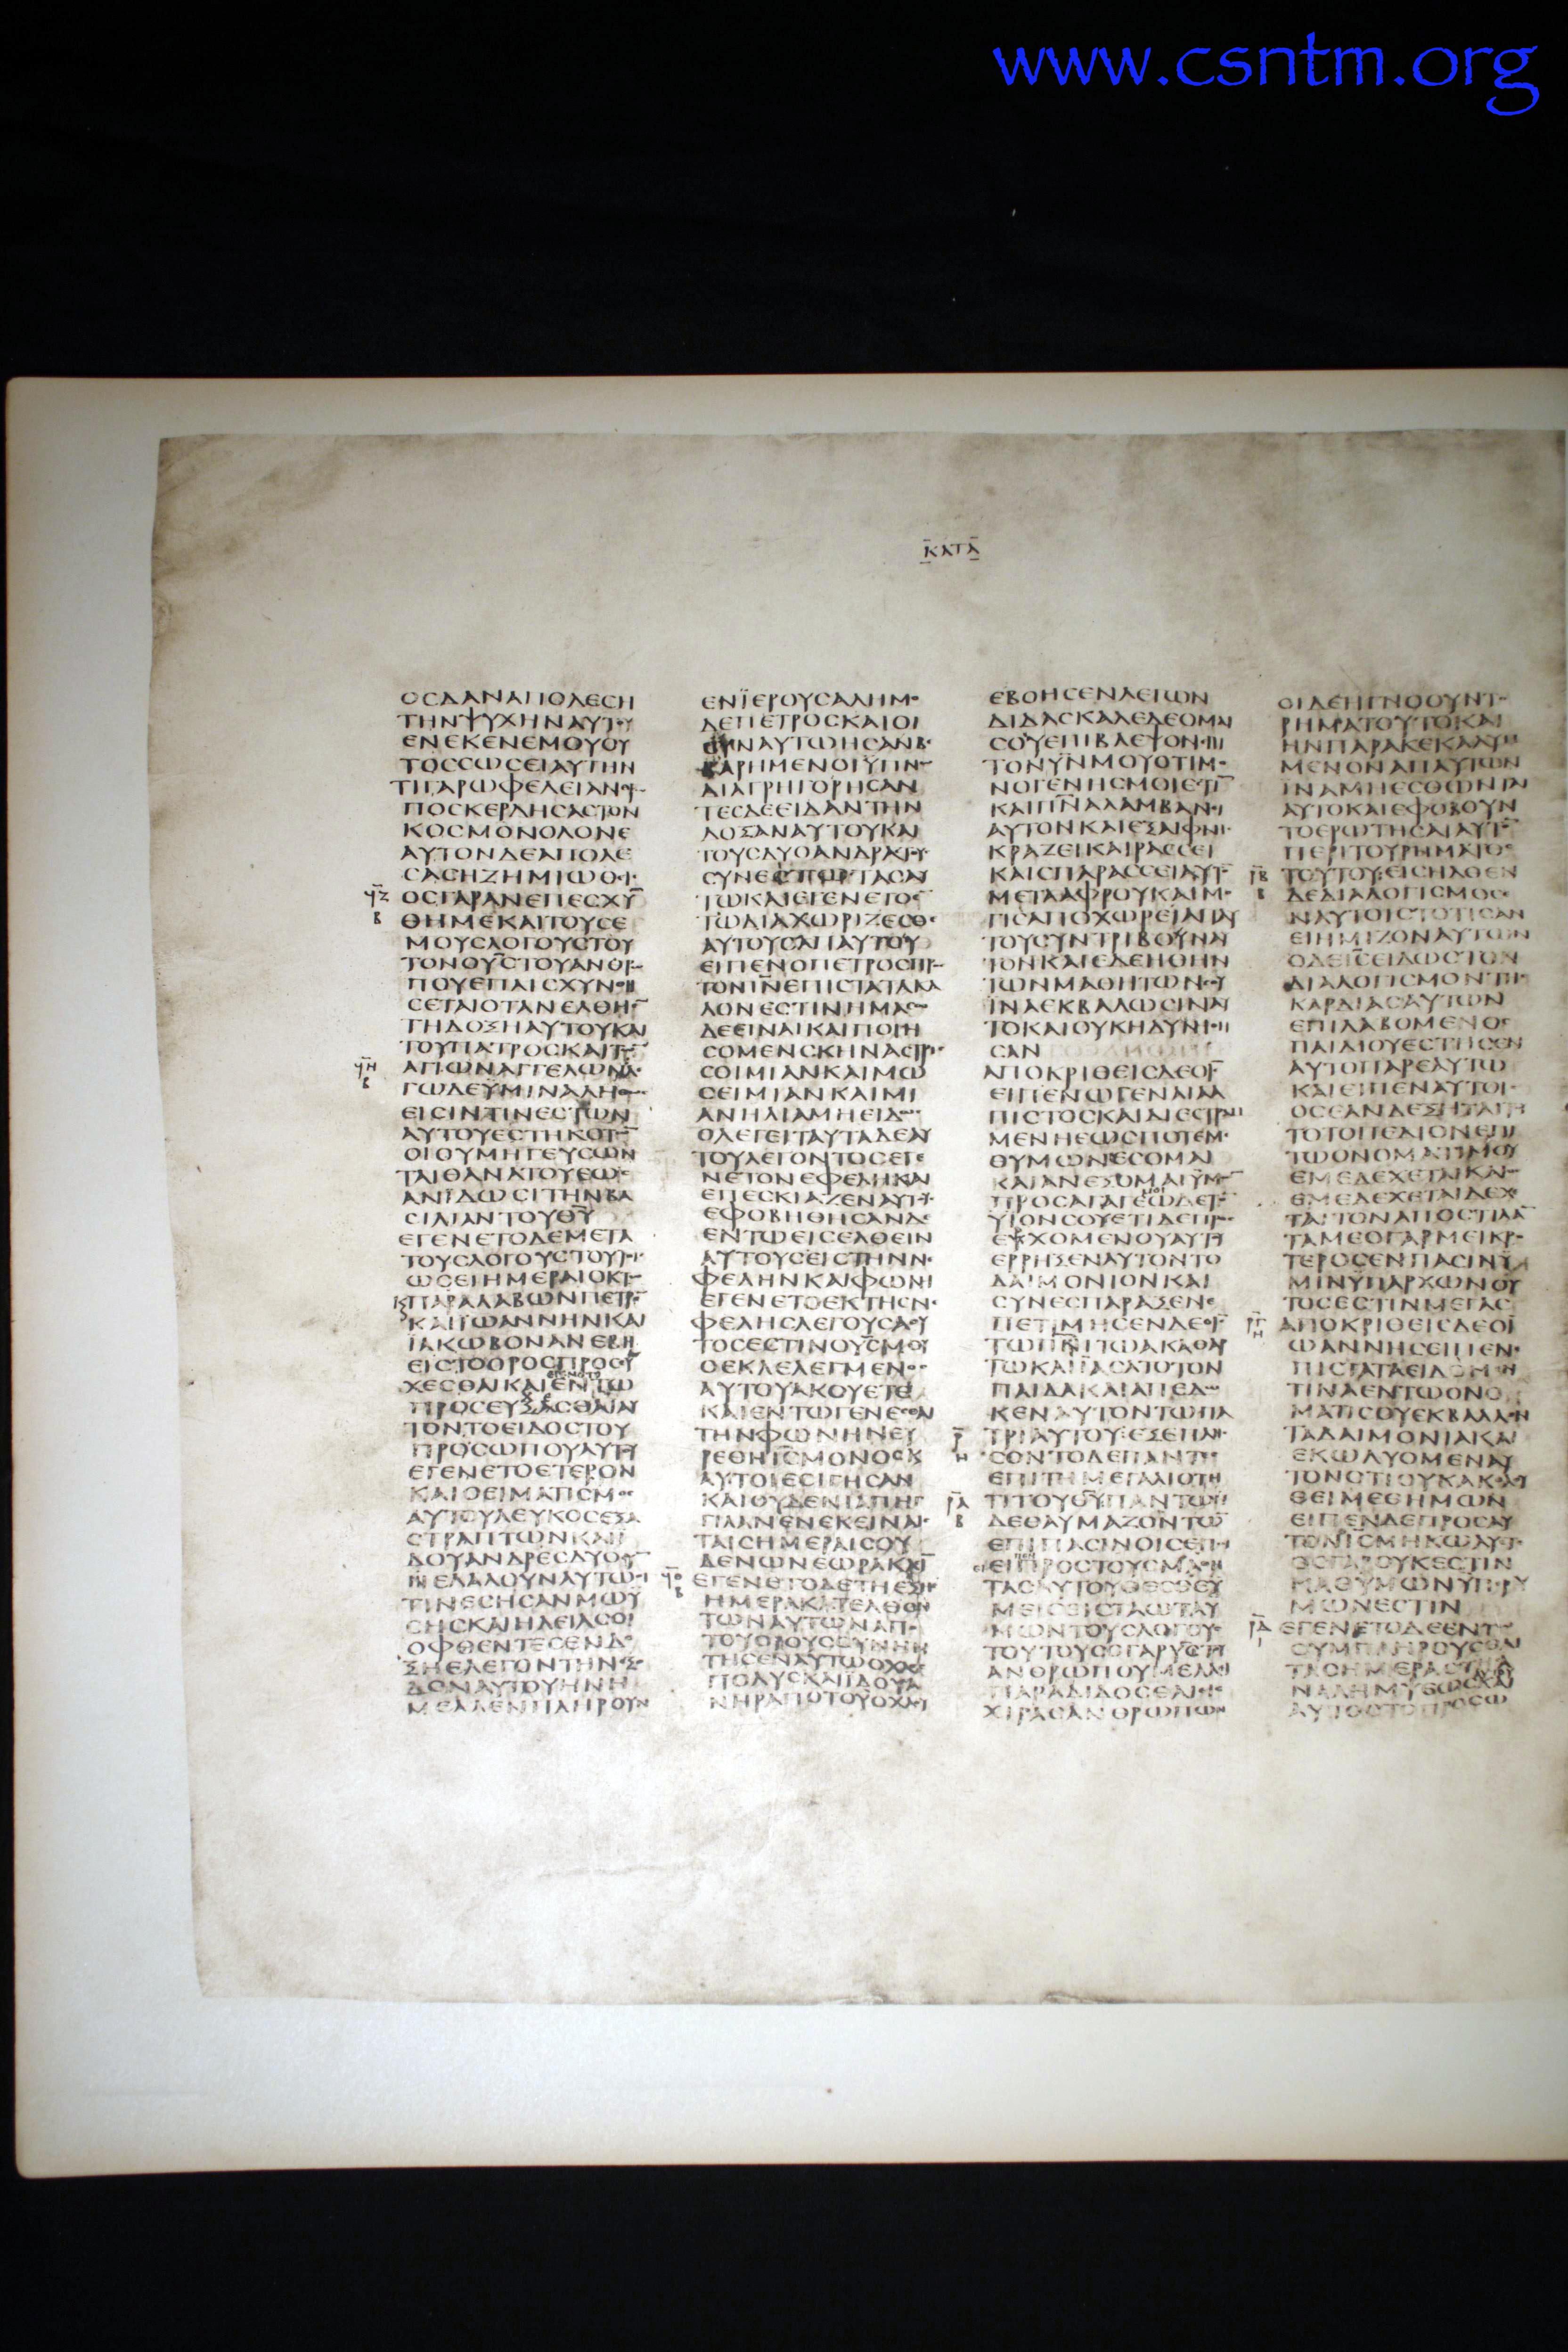 www.csntm.org
ΚΑΤΑ
ΟCΔΑΝΑΠΟΛΕCΗ
ΤΗΝΨΥΧΗΝΑΥΤΟΥ
ΕΝΕΚΕΝΕΜΟΥΟΥ
ΤΟCCΩCΕΙΑΥΤΗΝ
ΤΙΓΑΡΩΦΕΛΕΙΑΝΟΡ
ΠΟCΚΕΡΔΗCΑCΤΟΝ
ΚΟCΜΟΝΟΛΟΝΕ
ΑΥΤΟΝΔΕΑΠΟΛΕ
CΑCΗΖΗΜΙΩΘΙC
ΟCΓΑΡΑΝΕΠΕCΧΥ
ΘΗΜΕΚΑΙΤΟΥCΕ
ΜΟΥCΛΟΓΟΥCΤΟΥ
ΤΟΝΟΥCΤΟΥΑΝΘΡΩ
ΠΟΥΕΠΑΙCΧΥΝΘΗ
CΕΤΑΙΟΤΑΝΕΛΘΗ
ΤΗΔΟΞΗΑΥΤΟΥΚΑΙ
ΤΟΥΠΑΤΡΟCΚΑΙΤΩ
ΑΓΙΩΝΑΓΓΕΛΩΝ
ΓΩΔΕΥΜΙΝΑΛΗΘΩC
ΕΙCΙΝΤΙΝΕCΤΩΝ
ΑΥΤΟΥΕCΤΗΚΟΤΩ
ΟΙΟΥΜΗΓΕΥCΩΝ
ΤΑΙΘΑΝΑΤΟΥΕΩC
ΑΝΪΔΩCΙΤΗΝΒΑ
CΙΛΙΑΝΤΟΥΘΥ
ΕΓΕΝΕΤΟΔΕΜΕΤΑ
ΤΟΥCΛΟΓΟΥCΤΟΥΤΟΥC
ΩCΕΙΗΜΕΡΑΙΟΚΤΩ
ΠΑΡΑΛΑΒΩΝΠΕΤΡΟ
ΚΑΙΪΩΑΝΝΗΝΚΑΙ
ΪΑΚΩΒΟΝΑΝΕΒΗ
ΕΙCΤΟΟΡΟCΠΡΟCΕΥ
ΧΕCΘΑΙΚΑΙΕΝΤΩ
ΠΡΟCΕΥΞΑCΘΑΙΑΥ
ΤΟΝΤΟΕΙΔΟCΤΟΥ
ΠΡΟCΩΠΟΥΑΥΤΟΥ
ΕΓΕΝΕΤΟΕΤΕΡΟΝ
ΚΑΙΟΕΙΜΑΤΙCΜΟC
ΑΥΤΟΥΛΕΥΚΟCΕΞΑ
CΤΡΑΠΤΩΝΚΑΙΪ
ΔΟΥΑΝΔΡΕCΔΥΟCΥ
ΝΕΛΑΛΟΥΝΑΥΤΩΟΙ
ΤΙΝΕCΗCΑΝΜΩΥ
CΗCΚΑΙΗΛΕΙΑCΟΙ
ΟΦΘΕΝΤΕCΕΝΔΟ
ΞΗΕΛΕΓΟΝΤΗΝΕΞΟ
ΔΟΝΑΥΤΟΥΗΝΗ
ΜΕΛΛΕΝΠΛΗΡΟΥΝ
ΕΝΪΕΡΟΥCΑΛΗΜΟ
ΔΕΠΕΤΡΟCΚΑΙΟΙ
CΥΝΑΥΤΩΗCΑΝΒΕ
ΒΑΡΗΜΕΝΟΙΥΠΝΩ
ΔΙΑΓΡΗΓΟΡΗCΑΝ
ΤΕCΔΕΕΙΔΑΝΤΗΝ
ΔΟΞΑΝΑΥΤΟΥΚΑΙ
ΤΟΥCΔΥΟΑΝΔΡΑCΤΟΥC
CΥΝΕCΤΩΤΑCΑΥ
ΤΩΚΑΙΕΓΕΝΕΤΟΕ
ΤΩΔΙΑΧΩΡΙΖΕCΘΑΙ
ΑΥΤΟΥCΑΠΑΥΤΟΥ
ΕΙΠΕΝΟΠΕΤΡΟCΠΡΟC
ΤΟΝΙΝΕΠΙCΤΑΤΑΚΑ
ΛΟΝΕCΤΙΝΗΜΑC
ΔΕΕΙΝΑΙΚΑΙΠΟΙΗ
CΟΜΕΝCΚΗΝΑCΤΡΙC
CΟΙΜΙΑΝΚΑΙΜΩ
CΕΙΜΙΑΝΚΑΙΜΙ
ΑΝΗΛΙΑΜΗΕΙΔΩC
ΟΛΕΓΕΙΤΑΥΤΑΔΕΑΥ
ΤΟΥΛΕΓΟΝΤΟCΕΓΕ
ΝΕΤΟΝΕΦΕΛΗΚΑΙ
ΕΠΕCΚΙΑΖΕΝΑΥΤΟΥC
ΕΦΟΒΗΘΗCΑΝΔΕ
ΕΝΤΩΕΙCΕΛΘΕΙΝ
ΑΥΤΟΥCΕΙCΤΗΝΝΕ
ΦΕΛΗΝΚΑΙΦΩΝΗ
ΕΓΕΝΕΤΟΕΚΤΗCΝΕ
ΦΕΛΗCΛΕΓΟΥCΑΟΥ
ΤΟCΕCΤΙΝΟΥCΜΟΥ
ΟΕΚΛΕΛΕΓΜΕΝΟC
ΑΥΤΟΥΑΚΟΥΕΤΕ
ΚΑΙΕΝΤΩΓΕΝΕCΘΑΙ
ΤΗΝΦΩΝΗΝΕΥ
ΡΕΘΗΙCΜΟΝΟCΚ
ΑΥΤΟΙΕCΙΓΗCΑΝ
ΚΑΙΟΥΔΕΝΙΑΠΗΓ
ΓΙΛΑΝΕΝΕΚΕΙΝΑΙC
ΤΑΙCΗΜΕΡΑΙCΟΥ
ΔΕΝΩΝΕΩΡΑΚΑΝ
ΕΓΕΝΕΤΟΔΕΤΗΕΞΗC
ΗΜΕΡΑΚΑΤΕΛΘΟΝ
ΤΩΝΑΥΤΩΝΑΠΟ
ΤΟΥΟΡΟΥCCΥΝΗΝ
ΤΗCΕΝΑΥΤΩΟΧΛΟC
ΠΟΛΥCΚΑΙΪΔΟΥΑ
ΝΗΡΑΠΟΤΟΥΟΧΛΟΥ
ΕΒΟΗCΕΝΛΕΓΩΝ
ΔΙΔΑCΚΑΛΕΔΕΟΜΑΙ
CΟΥΕΠΙΒΛΕΨΟΝΕΠΙ
ΤΟΝΥΝΜΟΥΟΤΙΜΟ
ΝΟΓΕΝΗCΜΟΙΕCΤΙ
ΚΑΙΠΝΑΛΑΜΒΑΝΕΙ
ΑΥΤΟΝΚΑΙΕΞΑΙΦΝΗC
ΚΡΑΖΕΙΚΑΙΡΑCCΕΙ
ΚΑΙCΠΑΡΑCCΕΙΑΥΤΟ
ΜΕΤΑΑΦΡΟΥΚΑΙΜΟ
ΓΙCΑΠΟΧΩΡΕΙΑΠΑΥ
ΤΟΥCΥΝΤΡΙΒΟΥΝΑΥ
ΤΟΝΚΑΙΕΔΕΗΘΗΝ
ΤΩΝΜΑΘΗΤΩΝCΟΥ
ΪΝΑΕΚΒΑΛΩCΙΝΑΥ
ΤΟΚΑΙΟΥΚΗΔΥΝΗΘΗ
CΑΝ
ΑΠΟΚΡΙΘΕΙCΔΕΟΙC
ΕΙΠΕΝΩΓΕΝΑΙΑΑ
ΠΙCΤΟCΚΑΙΔΙΕCΤΡΑΜ
ΜΕΝΗΕΩCΠΟΤΕΜΕ
ΘΥΜΩΝΕCΟΜΑΙ
ΚΑΙΑΝΕΞΟΜΑΙΥΜΩ
ΠΡΟCΑΓΑΓΕΩΔΕΤΟ
ΥΙΟΝCΟΥΕΤΙΔΕΠΡΟC
ΕΡΧΟΜΕΝΟΥΑΥΤΟΥ
ΕΡΡΗΞΕΝΑΥΤΟΝΤΟ
ΔΑΙΜΟΝΙΟΝΚΑΙ
CΥΝΕCΠΑΡΑΞΕΝΕ
ΠΕΤΙΜΗCΕΝΔΕΟΙC
ΤΩΠΝΙΤΩΑΚΑΘΑΡ
ΤΩΚΑΙΪΑCΑΤΟΤΟΝ
ΠΑΙΔΑΚΑΙΑΠΕΔΩ
ΚΕΝΑΥΤΟΝΤΩΠΑ
ΤΡΙΑΥΤΟΥΕΞΕΠΛΗC
CΟΝΤΟΔΕΠΑΝΤΕC
ΕΠΙΤΗΜΕΓΑΛΙΟΤΗ
ΤΙΤΟΥΘΥΠΑΝΤΩΝ
ΔΕΘΑΥΜΑΖΟΝΤΩ
ΕΠΙΠΑCΙΝΟΙCΕΠΟΙ
ΕΙΠΡΟCΤΟΥCΜΑΘΗ
ΤΑCΑΥΤΟΥΘΕCΘΕΥ
ΜΕΙCΕΙCΤΑΩΤΑΥ
ΜΩΝΤΟΥCΛΟΓΟΥC
ΤΟΥΤΟΥCΟΓΑΡΥCΤΟΥ
ΑΝΘΡΩΠΟΥΜΕΛΛΕΙ
ΠΑΡΑΔΙΔΟCΘΑΙΕΙC
ΧΙΡΑCΑΝΘΡΩΠΩΝ
ΟΙΔΕΗΓΝΟΟΥΝΤΟ
ΡΗΜΑΤΟΥΤΟΚΑΙ
ΗΝΠΑΡΑΚΕΚΑΛΥΜ
ΜΕΝΟΝΑΠΑΥΤΩΝ
ΙΝΑΜΗΕCΘΩΝΤΑΙ
ΑΥΤΟΚΑΙΕΦΟΒΟΥΝ
ΤΟΕΡΩΤΗCΑΙΑΥΤΟ
ΠΕΡΙΤΟΥΡΗΜΑΤΟC
ΤΟΥΤΟΥΕΙCΗΛΘΕΝ
ΔΕΔΙΑΛΟΓΙCΜΟCΕ
ΝΑΥΤΟΙCΤΟΤΙCΑΝ
ΕΙΗΜΙΖΩΝΑΥΤΩΝ
ΟΔΕΙCΕΙΔΩCΤΟΝ
ΔΙΑΛΟΓΙCΜΟΝΤΗC
ΚΑΡΔΙΑCΑΥΤΩΝ
ΕΠΙΛΑΒΟΜΕΝΟC
ΠΑΙΔΙΟΥΕCΤΗCΕΝ
ΑΥΤΟΠΑΡΕΑΥΤΩ
ΚΑΙΕΙΠΕΝΑΥΤΟΙC
ΟCΕΑΝΔΕΞΗΤΑΙΤΟΥ
ΤΟΤΟΠΕΔΙΟΝΕΠΙ
ΤΩΟΝΟΜΑΤΙΜΟΥ
ΕΜΕΔΕΧΕΤΑΙΚΑΙΟC
ΕΜΕΔΕΧΕΤΑΙΔΕΧΕ
ΤΑΙΤΟΝΑΠΟCΤΙΛΑ
ΤΑΜΕΟΓΑΡΜΕΙΚΡΟ
ΤΕΡΟCΕΝΠΑCΙΝΥ
ΜΙΝΥΠΑΡΧΩΝΟΥ
ΤΟCΕCΤΙΝΜΕΓΑC
ΑΠΟΚΡΙΘΕΙCΔΕΟΪ
ΩΑΝΝΗCΕΙΠΕΝΕ
ΠΙCΤΑΤΑΕΙΔΟΜΕΝ
ΤΙΝΑΕΝΤΩΟΝΟ
ΜΑΤΙCΟΥΕΚΒΑΛΛΟΝ
ΤΑΔΑΙΜΟΝΙΑΚΑΙ
ΕΚΩΛΥΟΜΕΝΑΥ
ΤΟΝΟΤΙΟΥΚΑΚΟΛΟΥ
ΘΕΙΜΕΘΗΜΩΝ
ΕΙΠΕΝΔΕΠΡΟCΑΥ
ΤΟΝΙCΜΗΚΩΛΥΕΤΕ
ΟCΓΑΡΟΥΚΕCΤΙΝ
ΚΑΘΥΜΩΝΥΠΕΡΥ
ΜΩΝΕCΤΙΝ
ΕΓΕΝΕΤΟΔΕΕΝΤΩ
CΥΜΠΛΗΡΟΥCΘΑΙ